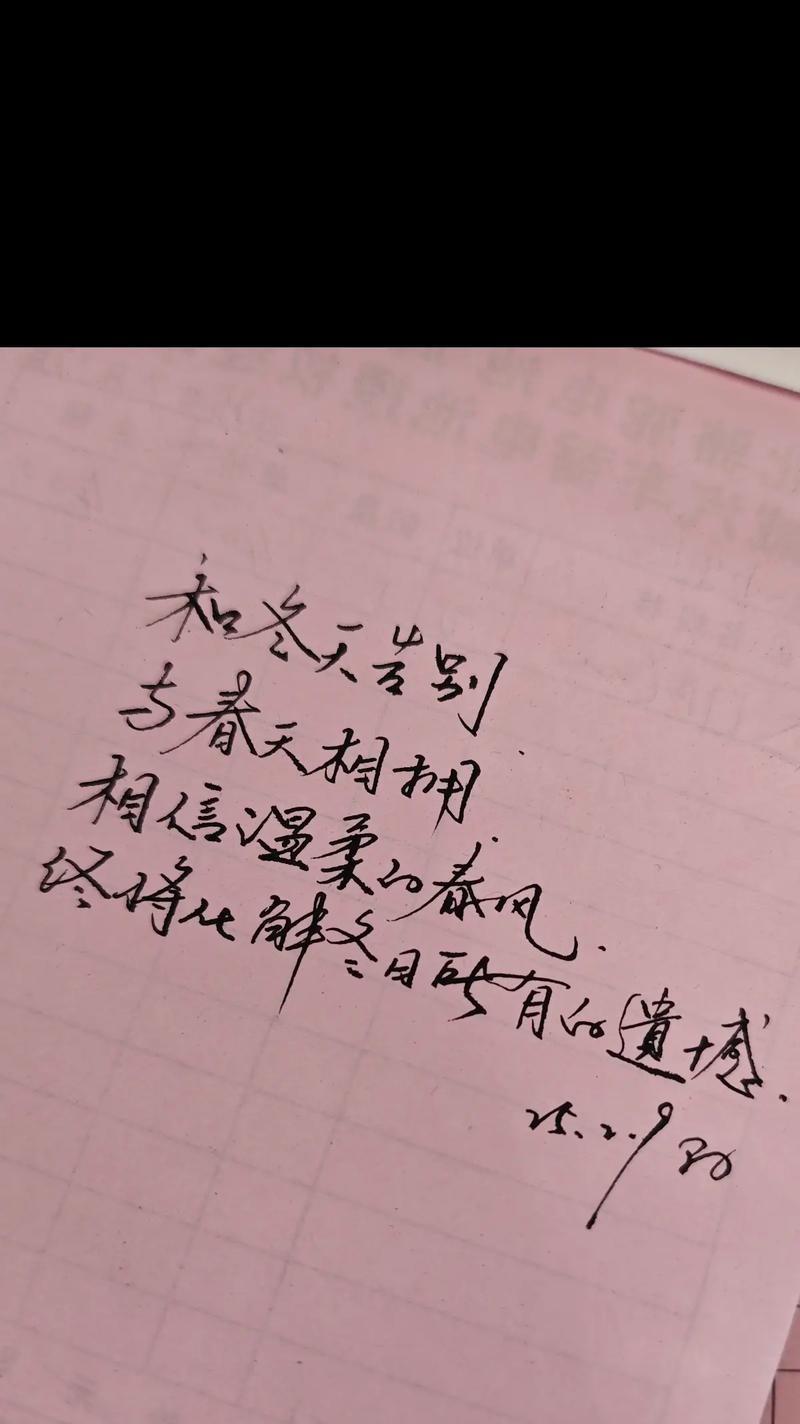 和冬天告别
与春天相拥.
相信温柔的春风.
终将化解冬日所有的遗憾.
25.2.9